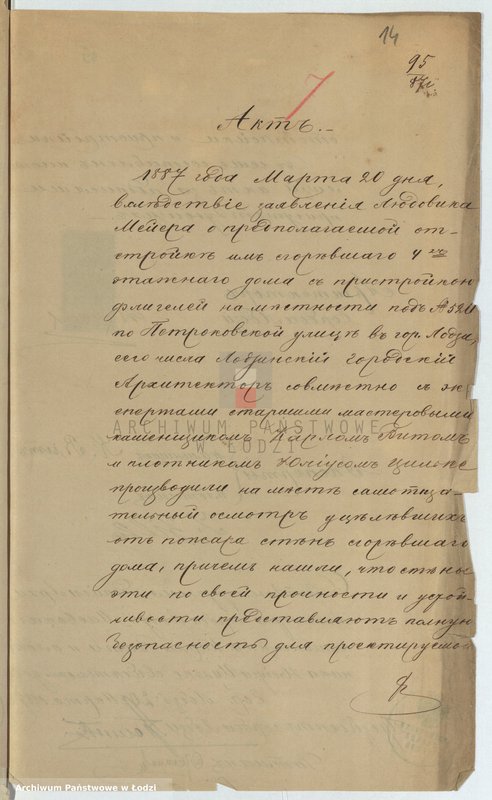 14
95
7
Актъ.
1887 года Марта 20 дня,
вслѣдствіе заявленія Людовика
Мейера о предполагаемой от-
стройкѣ имъ сгорѣвшаго 4 хъ
этажнаго дома съ пристройкою
флигелей на мѣстности подъ № 520
по Петроковской улицѣ въ гор. Лодзи,
сего числа Лодзинскій Городскій
Архитекторъ совмѣстно съ эк-
спертами старшими мастеровыми
каменщикомъ Карломъ
и плотникомъ Юліусомъ Цильке
производили на мѣстѣ самотща-
тельный осмотръ уцѣлѣвшихъ
отъ пожара стѣнъ сгорѣвшаго
дома, причемъ нашли, что стѣны
эти по своей прочности и устой-
ливости представляютъ полную
безопасность для проектируемой
ARCHIWUM PAŃSTWOWE
W ŁODZI
Archiwum Państwowe w Łodzi